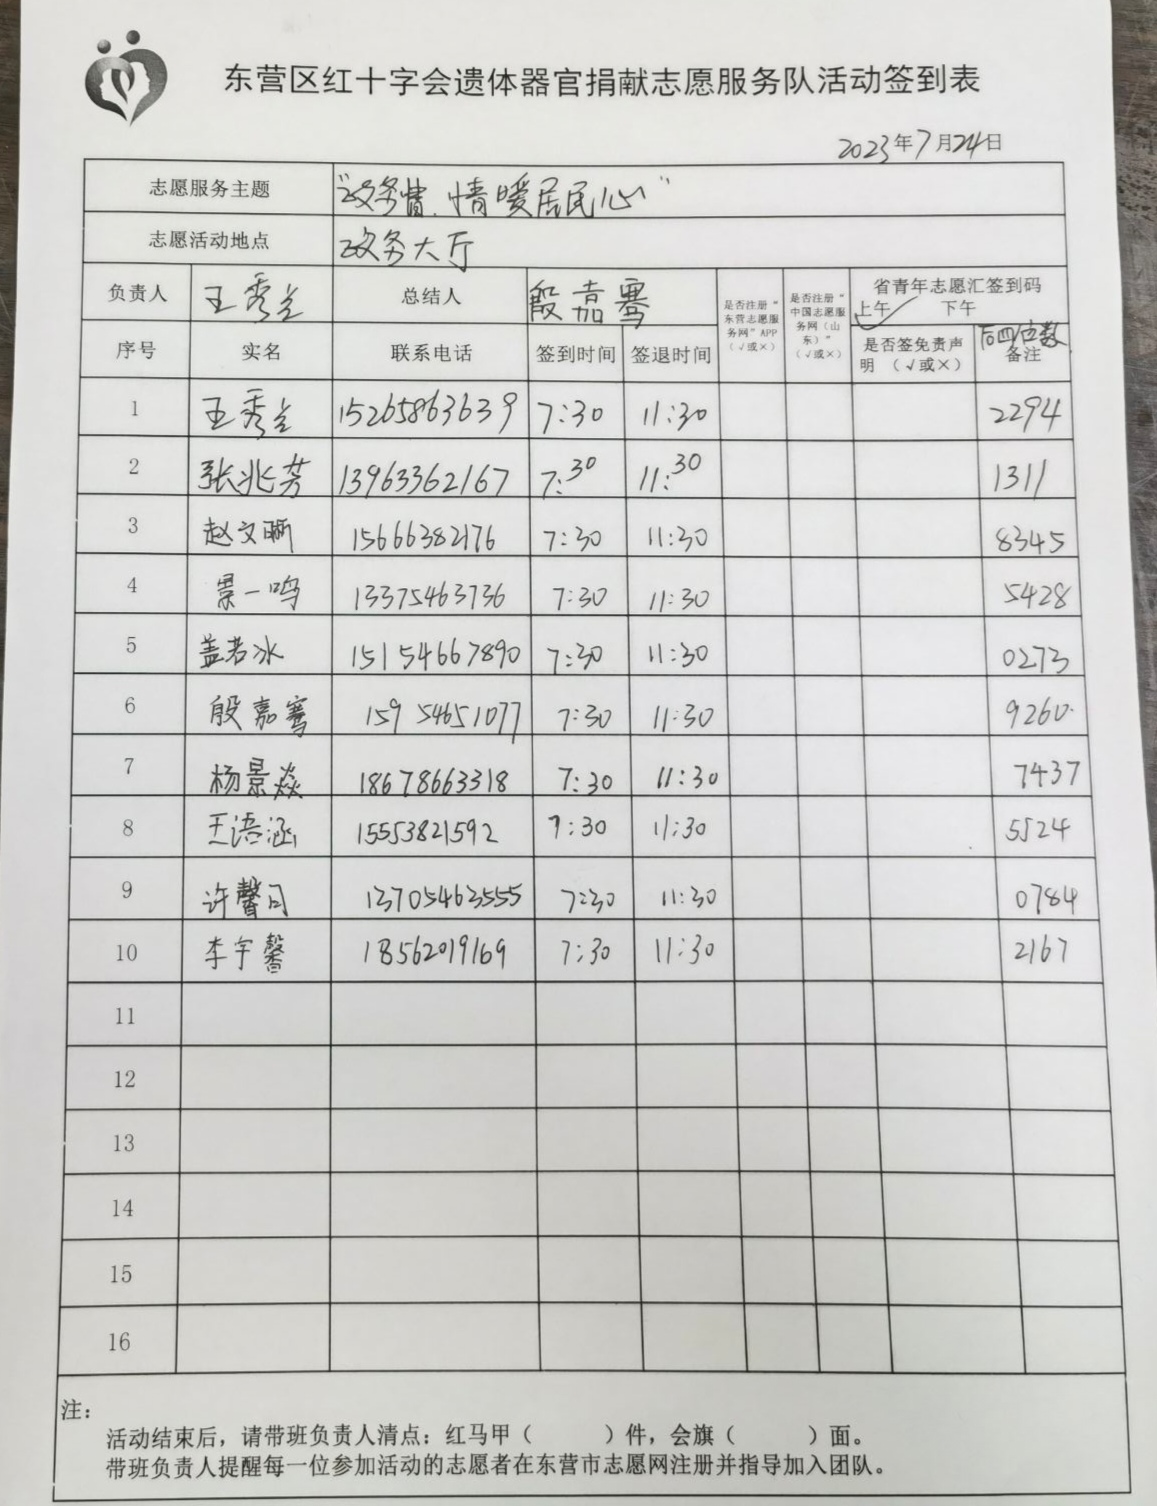 东营区红十字会遗体器官捐献志愿服务队活动签到表
2023年7月24日
志愿服务主题 "政务情.情暖居民心"
志愿活动地点 政务大厅
负责人 王秀兰 总结人 殷嘉骞 是否注册"东营志愿服务网"APP（√或×） 是否注册"中国志愿服务网（山东）"（√或×） 省青年志愿汇签到码
上午✓ 下午
序号 实名 联系电话 签到时间 签退时间 是否签免责声明（√或×） 后四位数 备注
1 王秀兰 15265863639 7:30 11:30 2294
2 张兆芳 13963362167 7:30 11:30 1311
3 赵文 15666382176 7:30 11:30 8345
4 景一鸣 13375463736 7:30 11:30 5428
5 盖若冰 15154667890 7:30 11:30 0273
6 殷嘉骞 15954651077 7:30 11:30 9260
7 杨景焱 18678663318 7:30 11:30 7437
8 王语涵 15553821592 7:30 11:30 5524
9 许馨月 13705463555 7:30 11:30 0784
10 李宇馨 18562019169 7:30 11:30 2167
11
12
13
14
15
16
注：
活动结束后，请带班负责人清点：红马甲（ ）件，会旗（ ）面。
带班负责人提醒每一位参加活动的志愿者在东营市志愿网注册并指导加入团队。